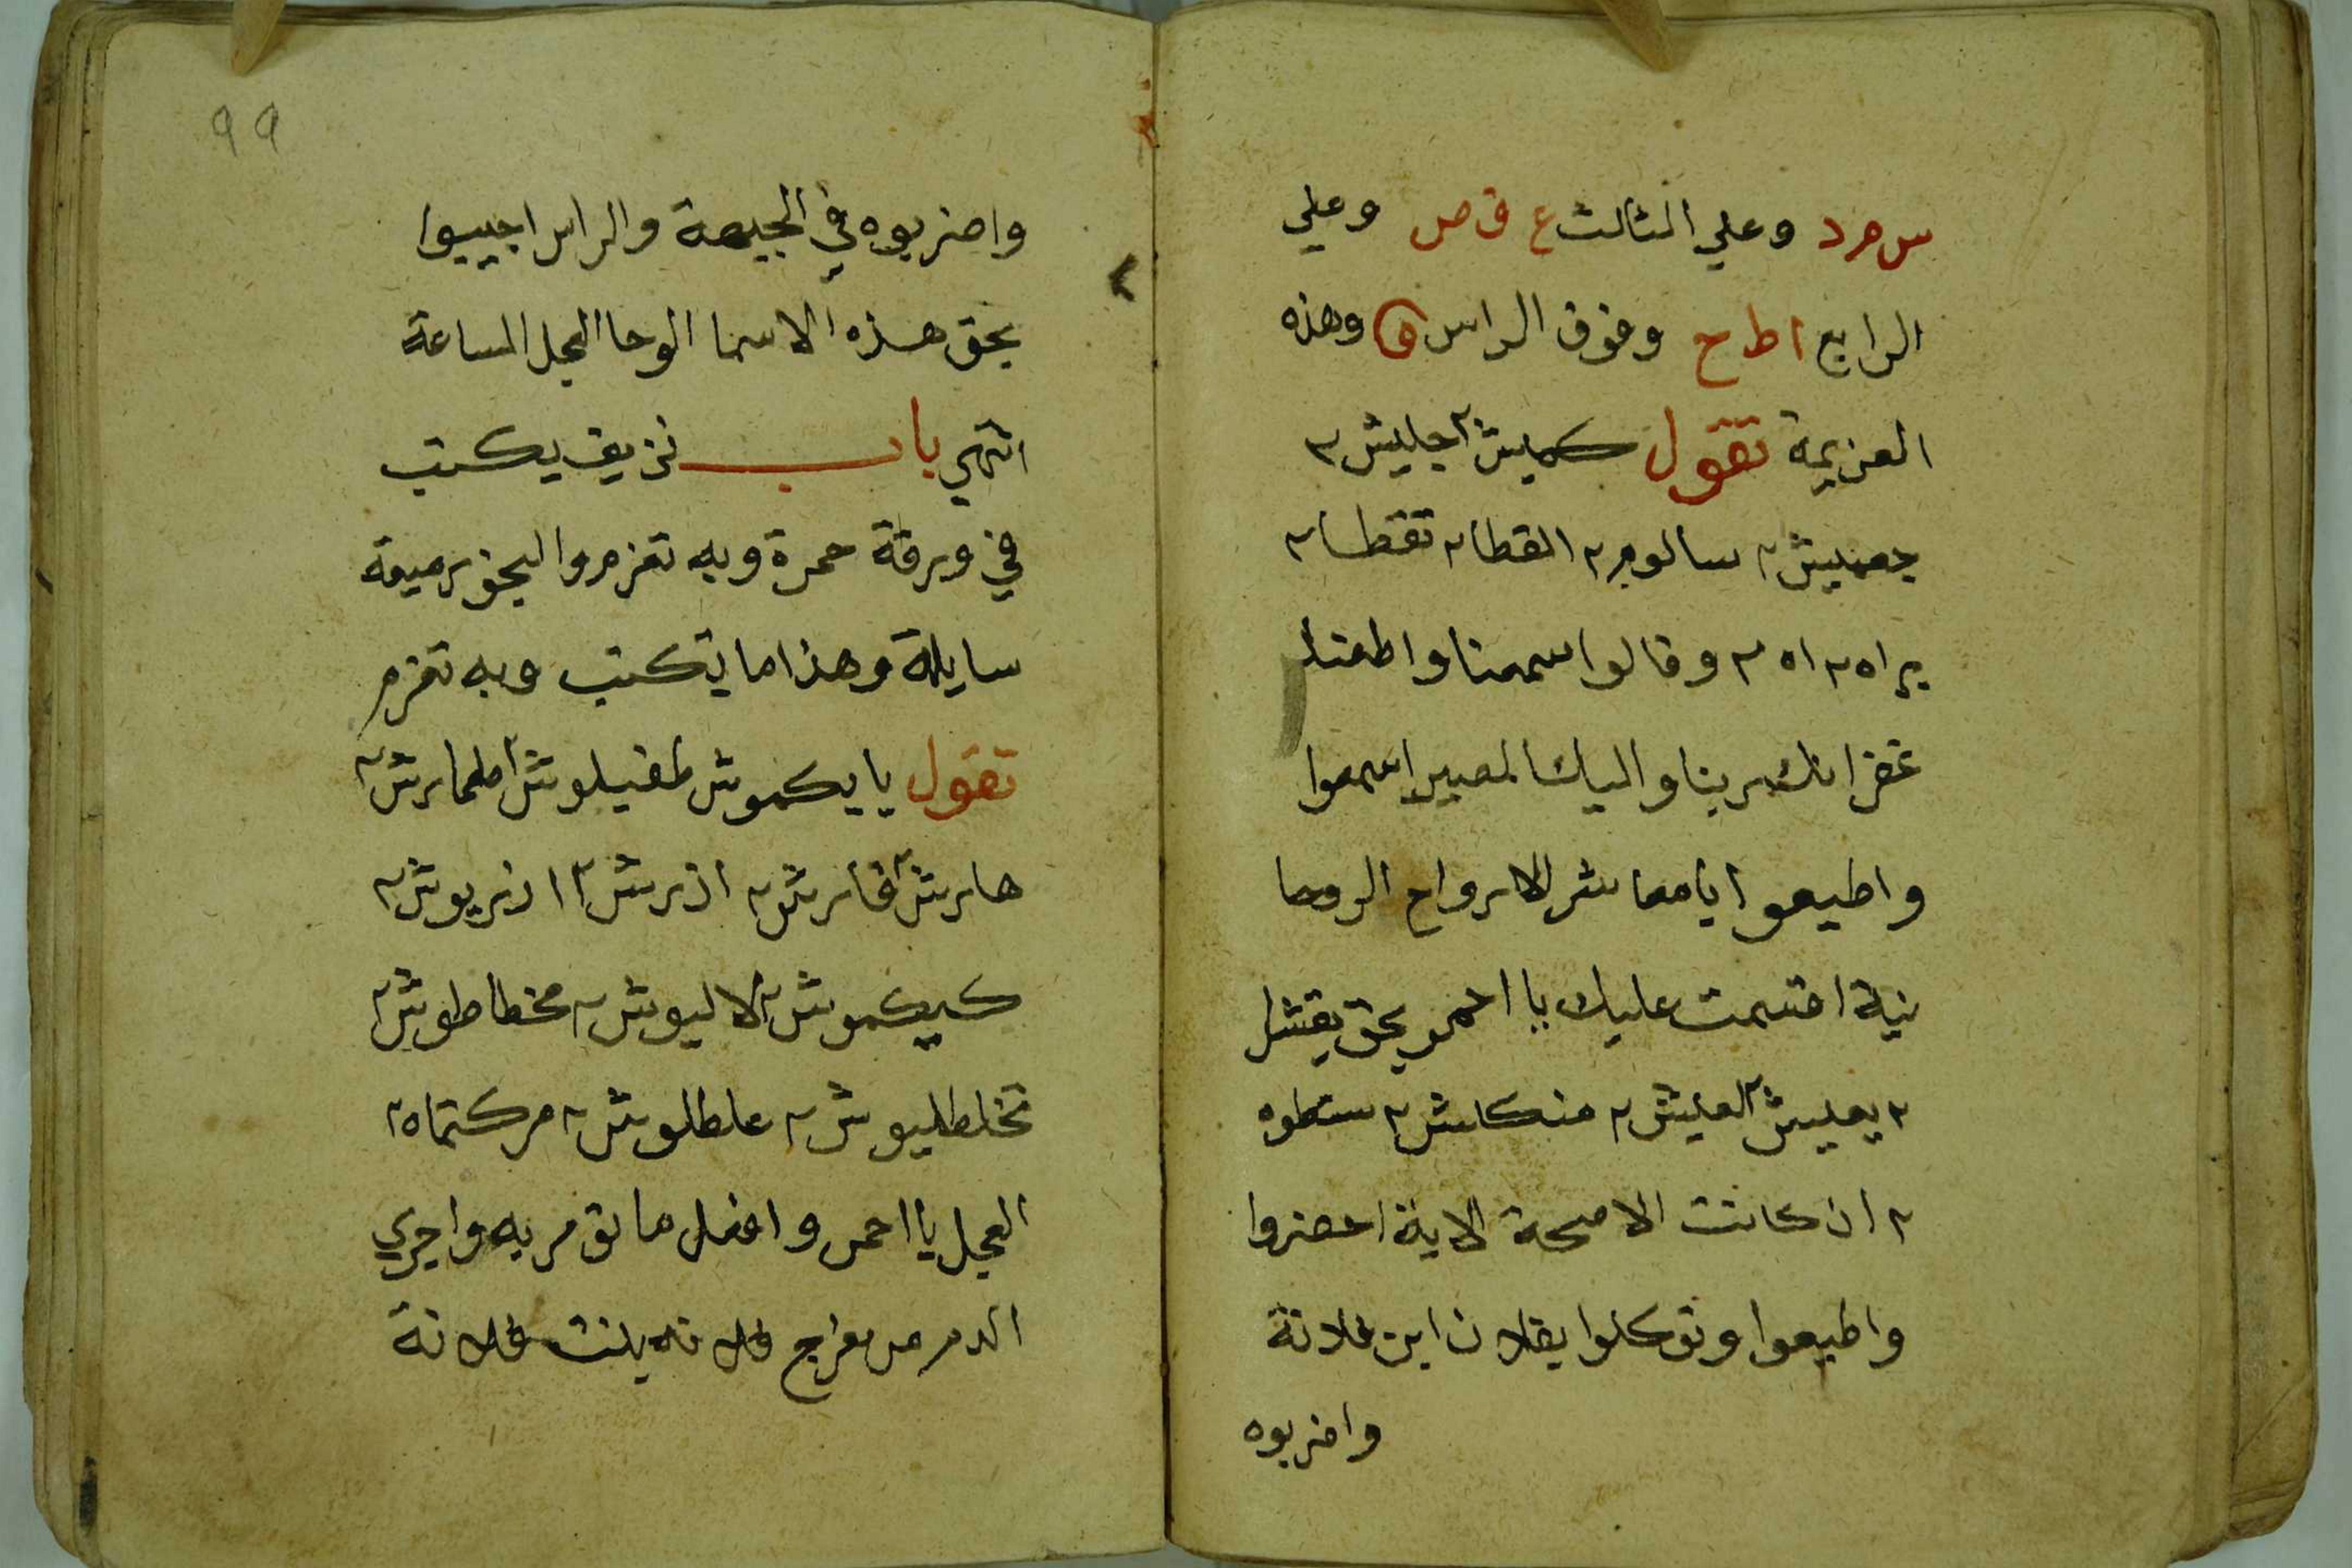 س م د وعلي الثالث ع ق ص وعلي
الرابع ا ط ح وفوق الراس ه وهذه
العزيمة تقول كميش ٢ جليش ٢
جهليش ٢ سالوم ٢ القطا ٢ تقطا ٢
براه ٢ اه ٢ وقالوا سمعنا واطعنا
غفرانك ربنا واليك المصير اسمعوا
واطيعوا يا معاشر الارواح الروحا
نية اقسمت عليك يا احمر بحق يقشا
٢ يعليش ٢ لعليش ٢ منكلش ٢ سطوه
٢ ان كانت الا صيحة الاية احضروا
واطيعوا وتوكلوا بفلان ابن فلانة
واضربوه
٩٩
واضربوه في الجبهة والراس اجيبوا
بحق هذه الاسما الوحا العجل الساعة
انتهي باب نزيف يكتب
في ورقة حمرة وبه تعزم والبخور ميعة
سايلة وهذا ما تكتب وبه تعزم
تقول يا يكموش طفيلوش ٢ طمارش ٢
هارش ٢ فارش ٢ ازرش ٢ ازريوش ٢
كيكموش ٢ لاليوش ٢ مخطاطوش ٢
تخلطليوش ٢ علطلوش ٢ مركتماه ٢
العجل يا احمر وافعل ما تومر به واجري
الدم من فرج فلانه بنت فلانة